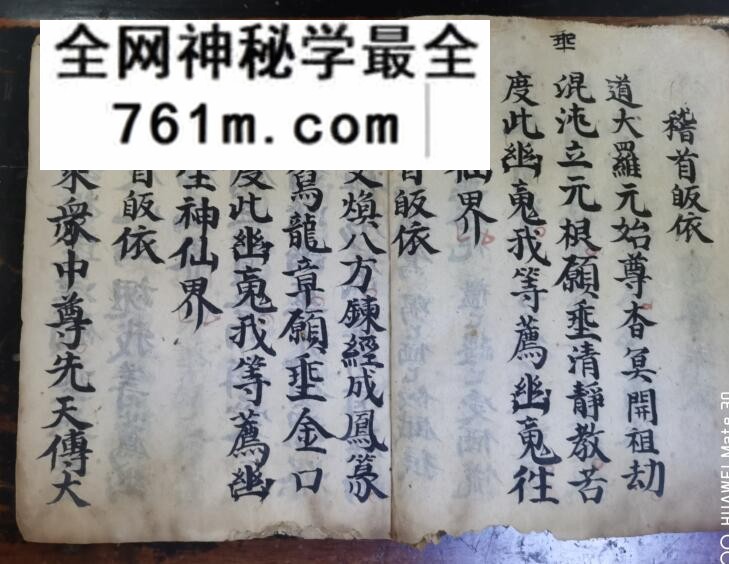 全网神秘学最全
761m.com
垂
稽首皈依
道大羅元始尊杳冥開祖劫
混沌立元根願垂清靜教苦
度此幽䰟我等薦幽䰟往
仙界
首皈依
煥八方鍊經成鳳篆
篤龍章願垂金口
度此幽䰟我等薦幽
神仙界
首皈依
眾中尊先天傳大
HUAWEI Mate 30